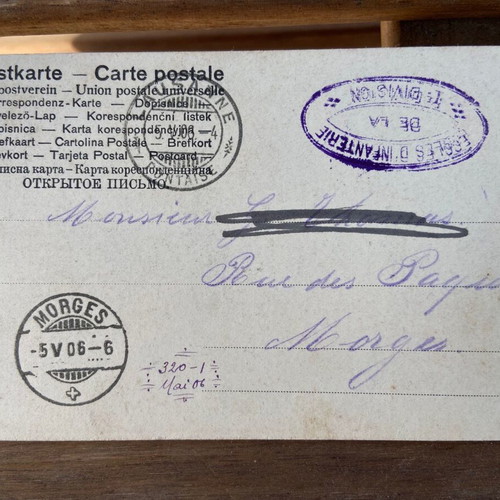 stkarte — Carte postale
postverein — Union postale universelle
orrespondenz-Karte — Dopisnice
evelező-Lap — Korespondenční listek
pisnica — Karta korespondencyjna
efkaart — Cartolina Postale — Brefkort
evkort — Tarjeta Postal — Postcard
писна карта — Карта корреспонденційна
ОТКРЫТОЕ ПИСЬМО
LAUSANNE
5.V.06.-4
PONTAISE
ECOLES D'INFANTERIE
DE LA
Ire DIVISION
Monsieur
Rue des Paqu
Morges
MORGES
-5 V 06-6
320-1
Mai 06